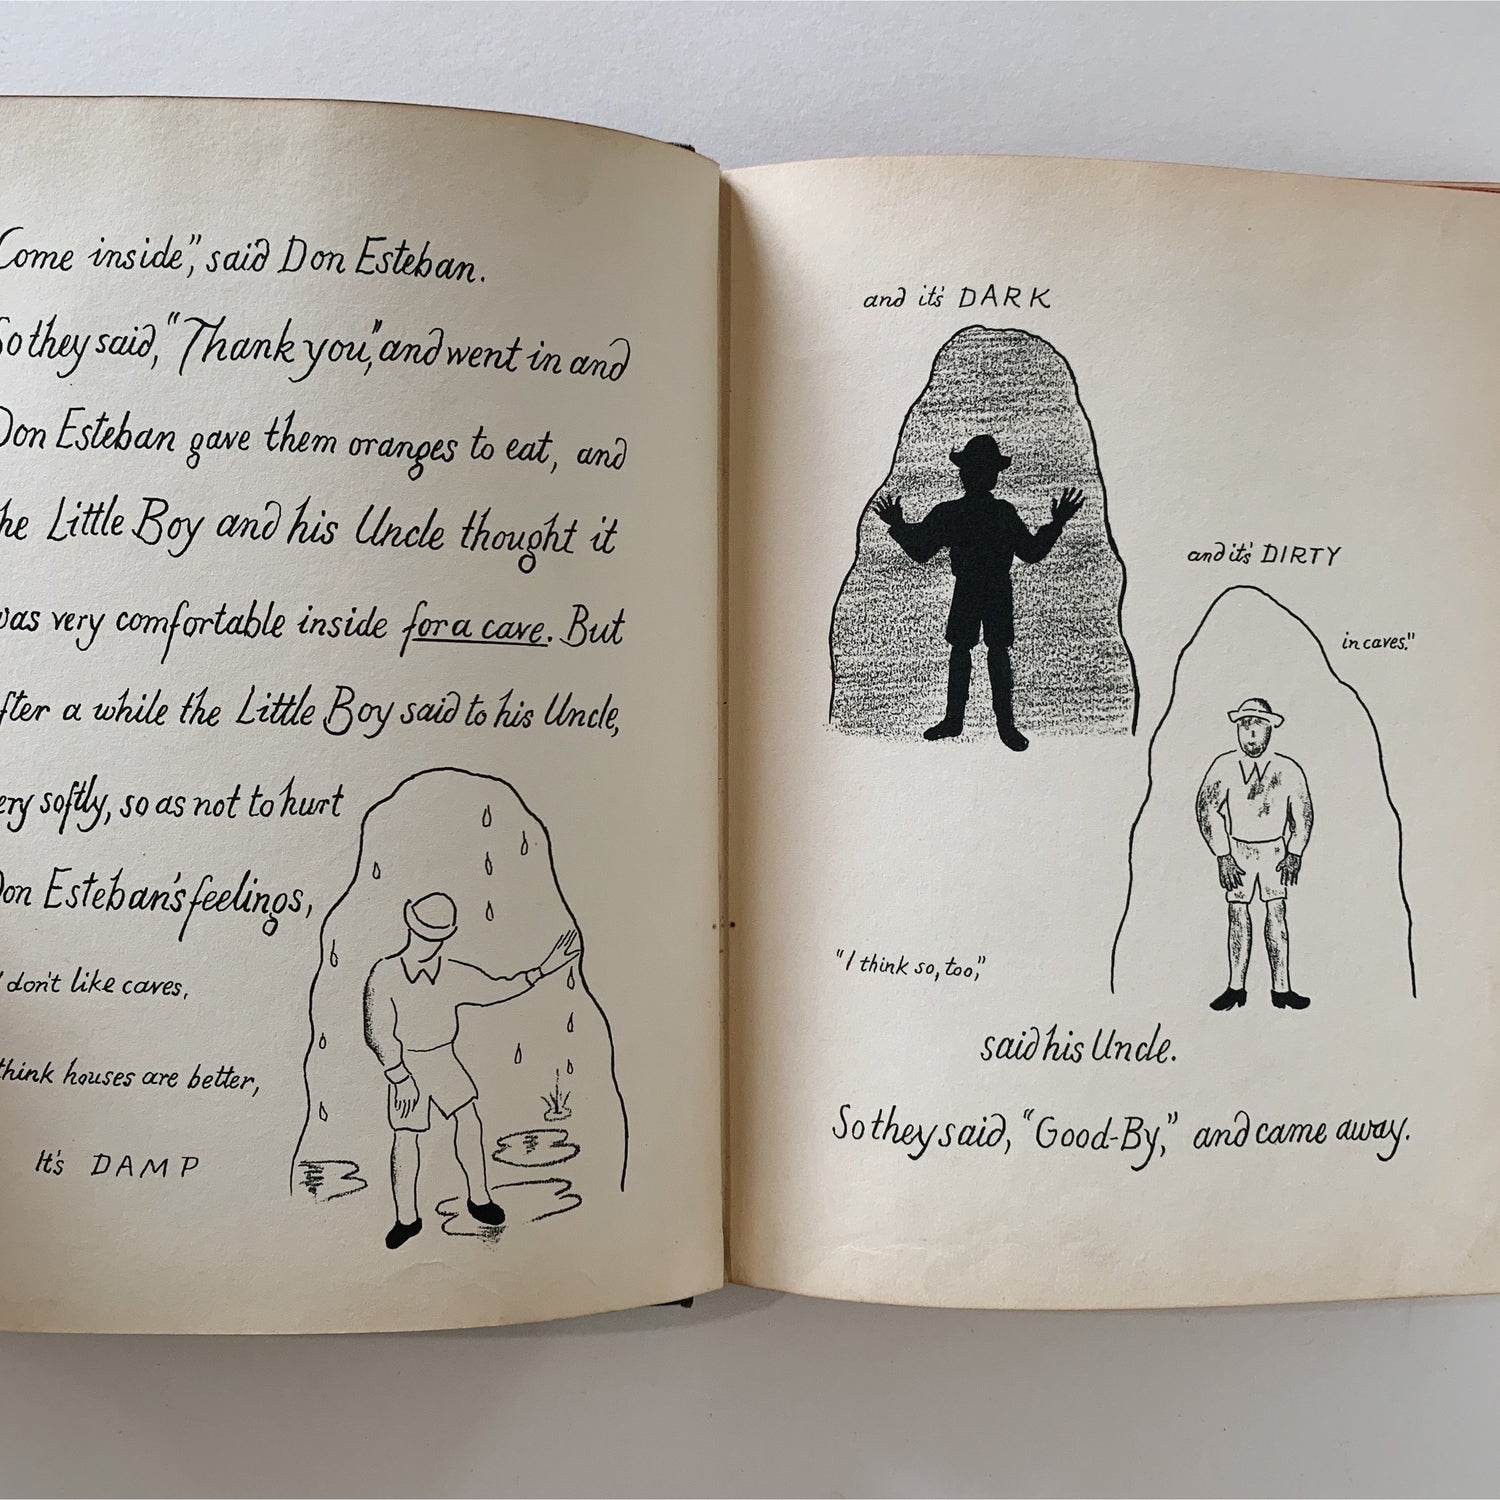 Come inside", said Don Esteban.
So they said, "Thank you," and went in and
Don Esteban gave them oranges to eat, and
he Little Boy and his Uncle thought it
was very comfortable inside for a cave. But
fter a while the Little Boy said to his Uncle,
ery softly, so as not to hurt
Don Esteban's feelings,
I don't like caves,
think houses are better,
It's DAMP
and it's DARK
and it's DIRTY
in caves."
"I think so, too,"
said his Uncle.
So they said, "Good-By," and came away.